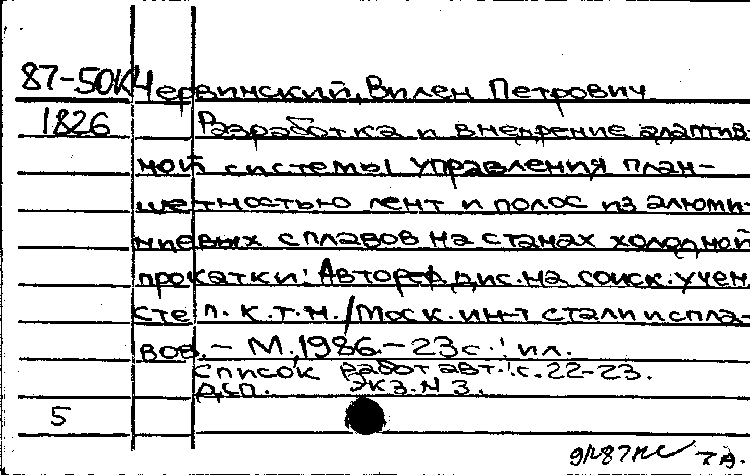 87-50К Червинский, Вилен Петрович
1826 Разработка и внедрение адаптив-
ной системы управления план-
шетностью лент и полос из алюми-
ниевых сплавов на станах холодной
прокатки: Автореф. дис. на соиск. учен.
степ. к.т.н. / Моск. ин-т стали и спла-
вов. – М., 1986. – 23 с.: ил.
Список работ авт.: с. 22-23.
ДСП. Экз. N 3.
5